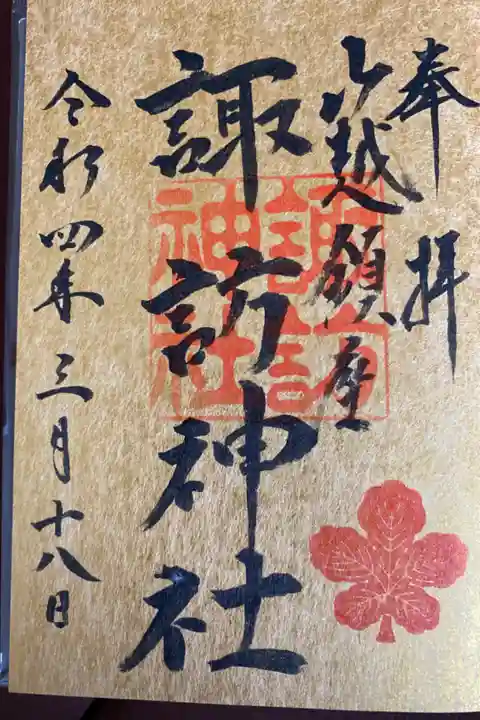 奉拝
越 座
諏訪神社
諏訪
神社
令和四年三月十八日